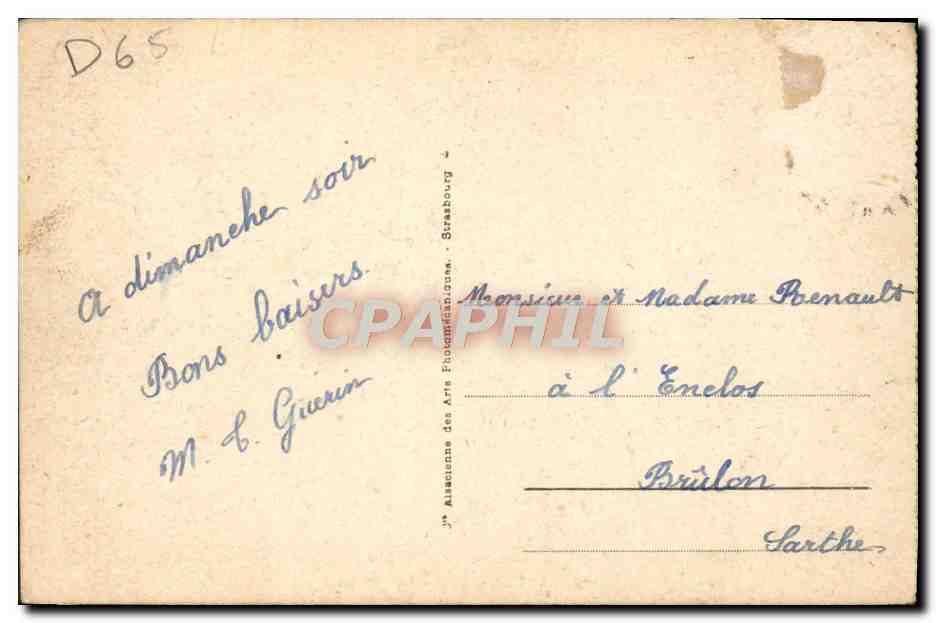 D65
A dimanche soir
Bons baisers.
M. C. Guerin
Alsacienne des Arts Photomécaniques. - Strasbourg
Monsieur et Madame Renault
à l' Enclos
Brûlon
Sarthe
CPAPHIL